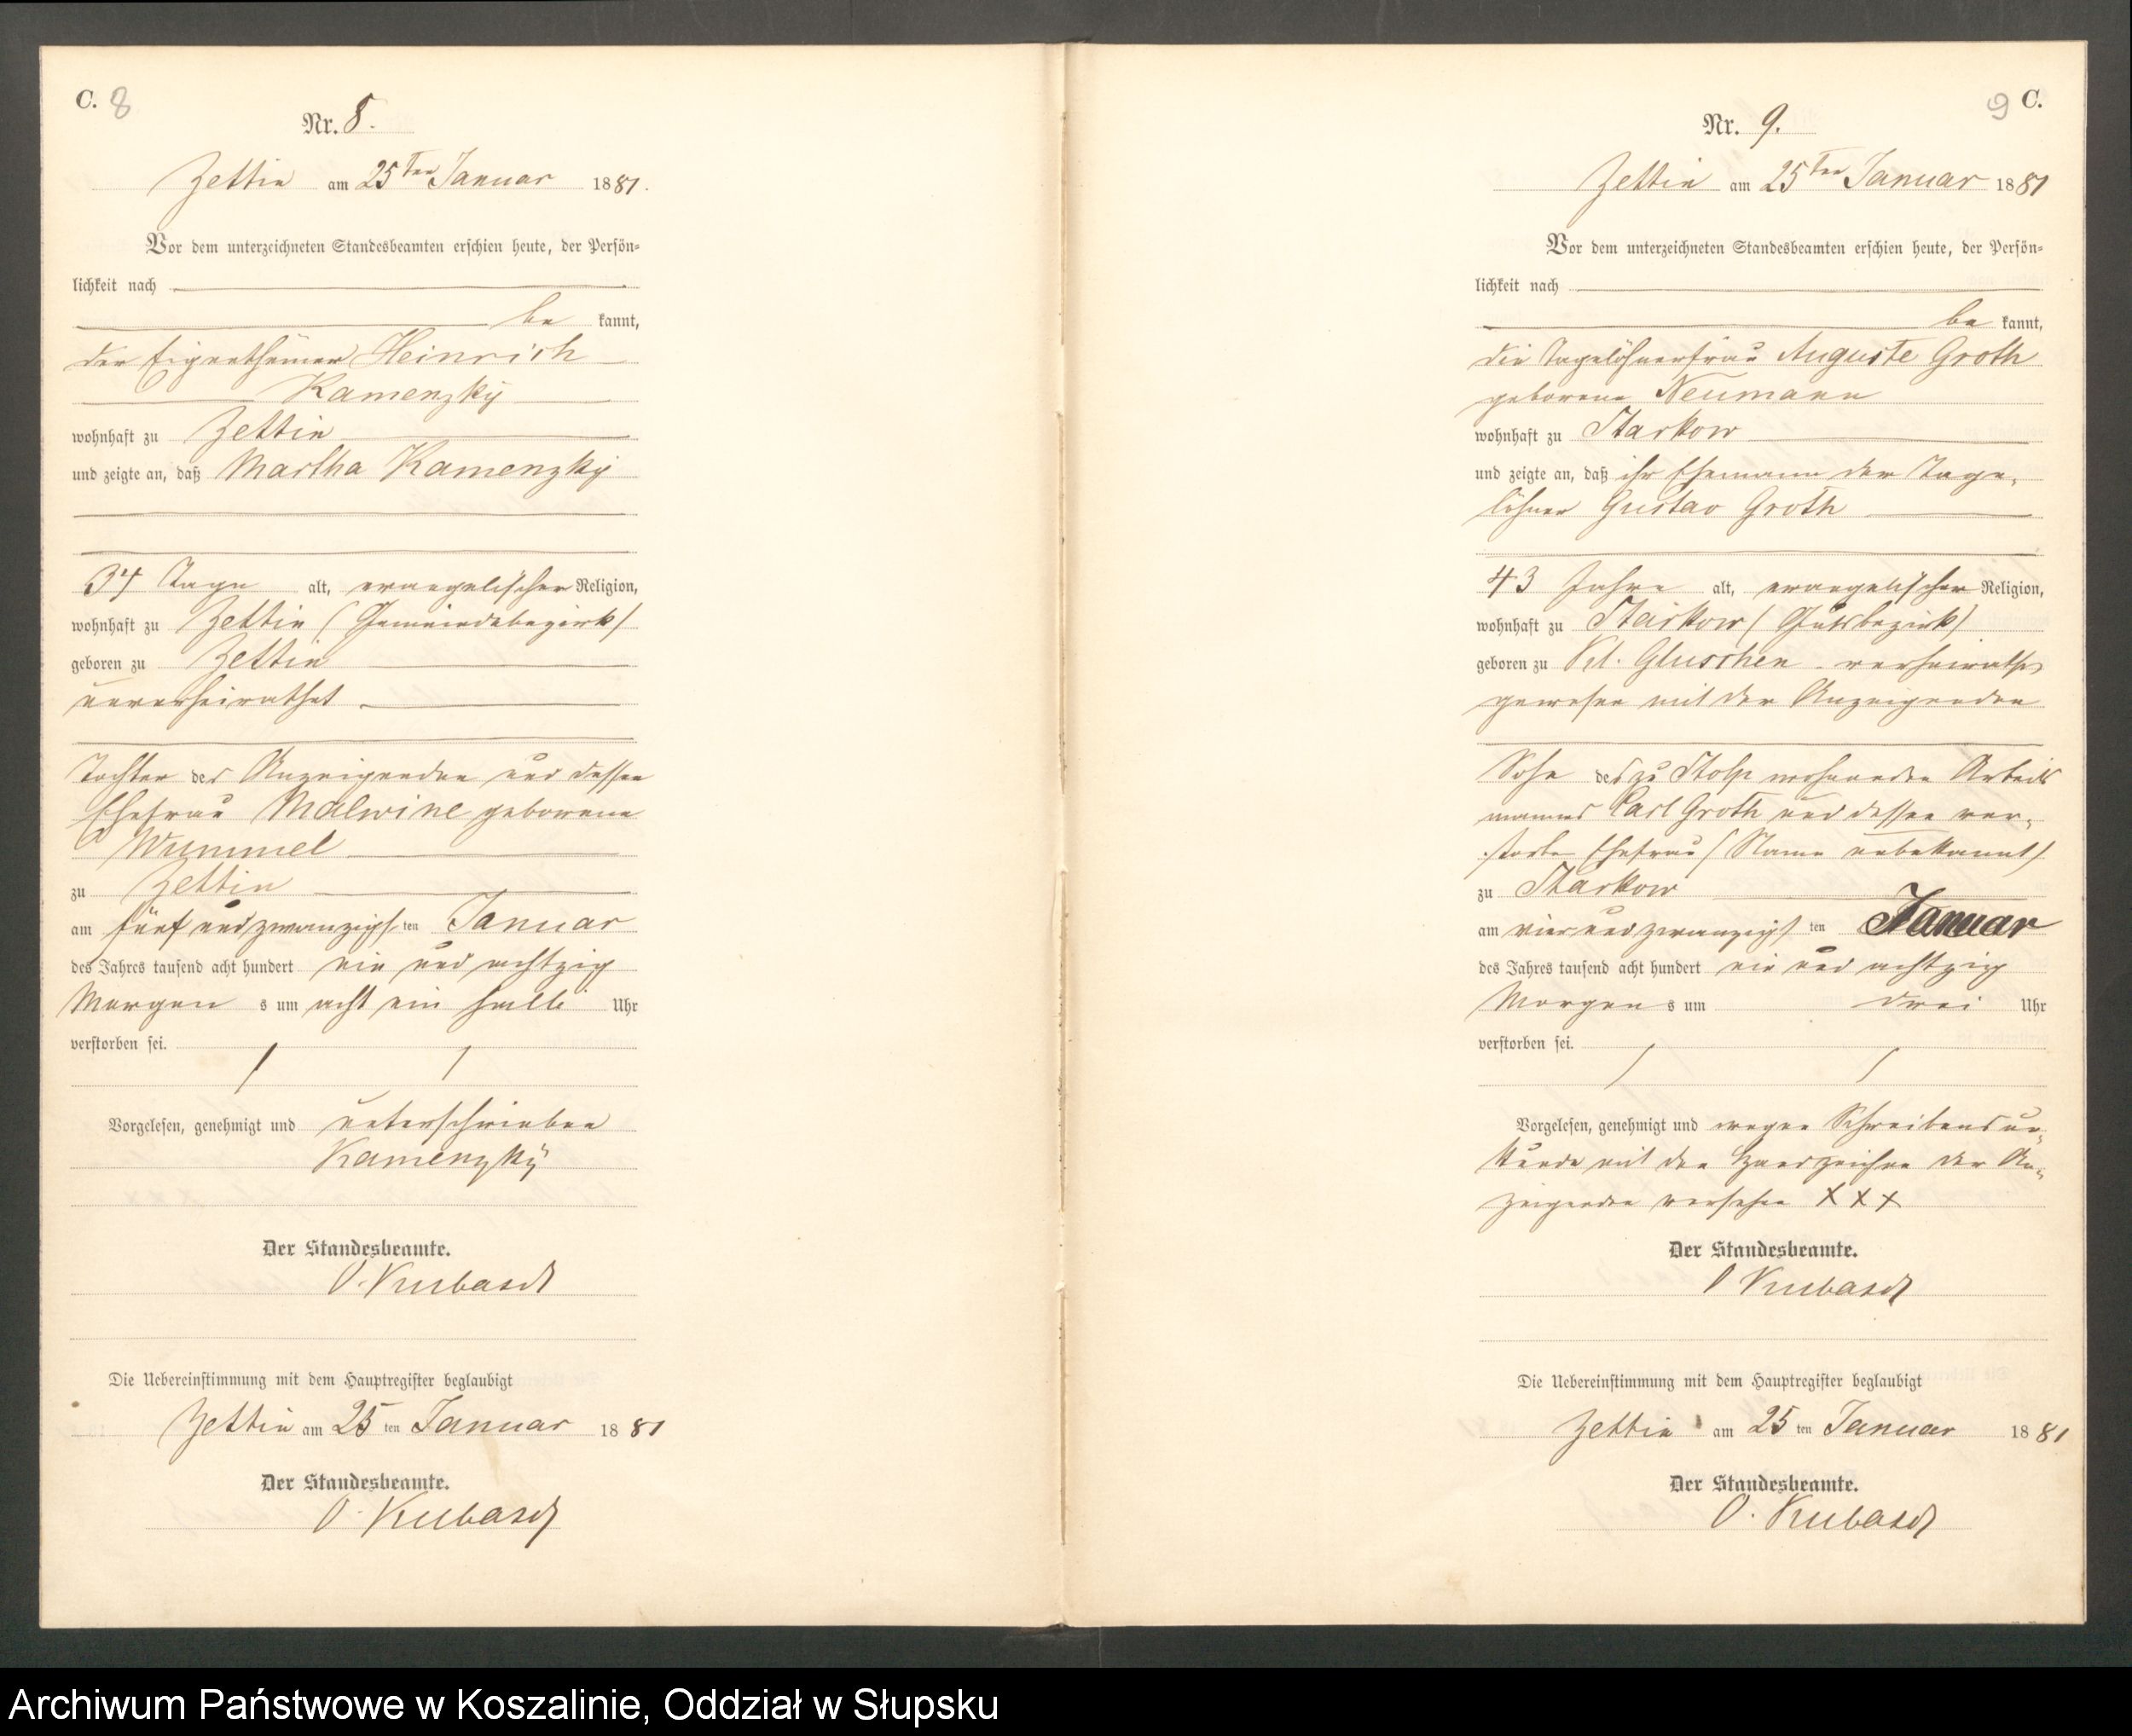 C. 8
Nr. 8.
Zettin am 25ten Januar 1881.
Vor dem unterzeichneten Standesbeamten erschien heute, der Persön-
lichkeit nach
be kannt,
der Eigenthümer Heinrich
Kamenzky
wohnhaft zu Zettin
und zeigte an, daß Martha Kamenzky
34 Tage alt, evangelischer Religion,
wohnhaft zu Zettin (Gemeindebezirk)
geboren zu Zettin
unverheirathet
Tochter des Anzeigenden und dessen
Ehefrau Malwine geborene
Wummel
zu Zettin
am fünf und zwanzigsten Januar
des Jahres tausend acht hundert ein und achtzig
Morgens um acht ein halb Uhr
verstorben sei.
Vorgelesen, genehmigt und unterschrieben
Kamenzky
Der Standesbeamte.
O. Kubasch
Die Uebereinstimmung mit dem Hauptregister beglaubigt
Zettin am 25 ten Januar 1881
Der Standesbeamte.
O. Kubasch
9 C.
Nr. 9.
Zettin am 25ten Januar 1881
Vor dem unterzeichneten Standesbeamten erschien heute, der Persön-
lichkeit nach
be kannt,
die Tagelöhnerfrau Auguste Groth
geborene Neumann
wohnhaft zu Starkow
und zeigte an, daß ihr Ehemann der Tage-
löhner Gustav Groth
43 Jahre alt, evangelischer Religion,
wohnhaft zu Starkow (Gutsbezirk)
geboren zu Kl. Gluschen verheirathet
gewesen mit der Anzeigenden
Sohn des zu Stolp wohnenden Arbeits
mannes Carl Groth und dessen ver-
storbn Ehefrau (Name unbekannt)
zu Starkow
am vier und zwanzigsten Januar
des Jahres tausend acht hundert ein und achtzig
Morgens um drei Uhr
verstorben sei.
Vorgelesen, genehmigt und wegen Schreibensun-
kunde mit den Handzeichen der An-
zeigenden versehen XXX
Der Standesbeamte.
O Kubasch
Die Uebereinstimmung mit dem Hauptregister beglaubigt
Zettin am 25 ten Januar 1881
Der Standesbeamte.
O. Kubasch
Archiwum Państwowe w Koszalinie, Oddział w Słupsku